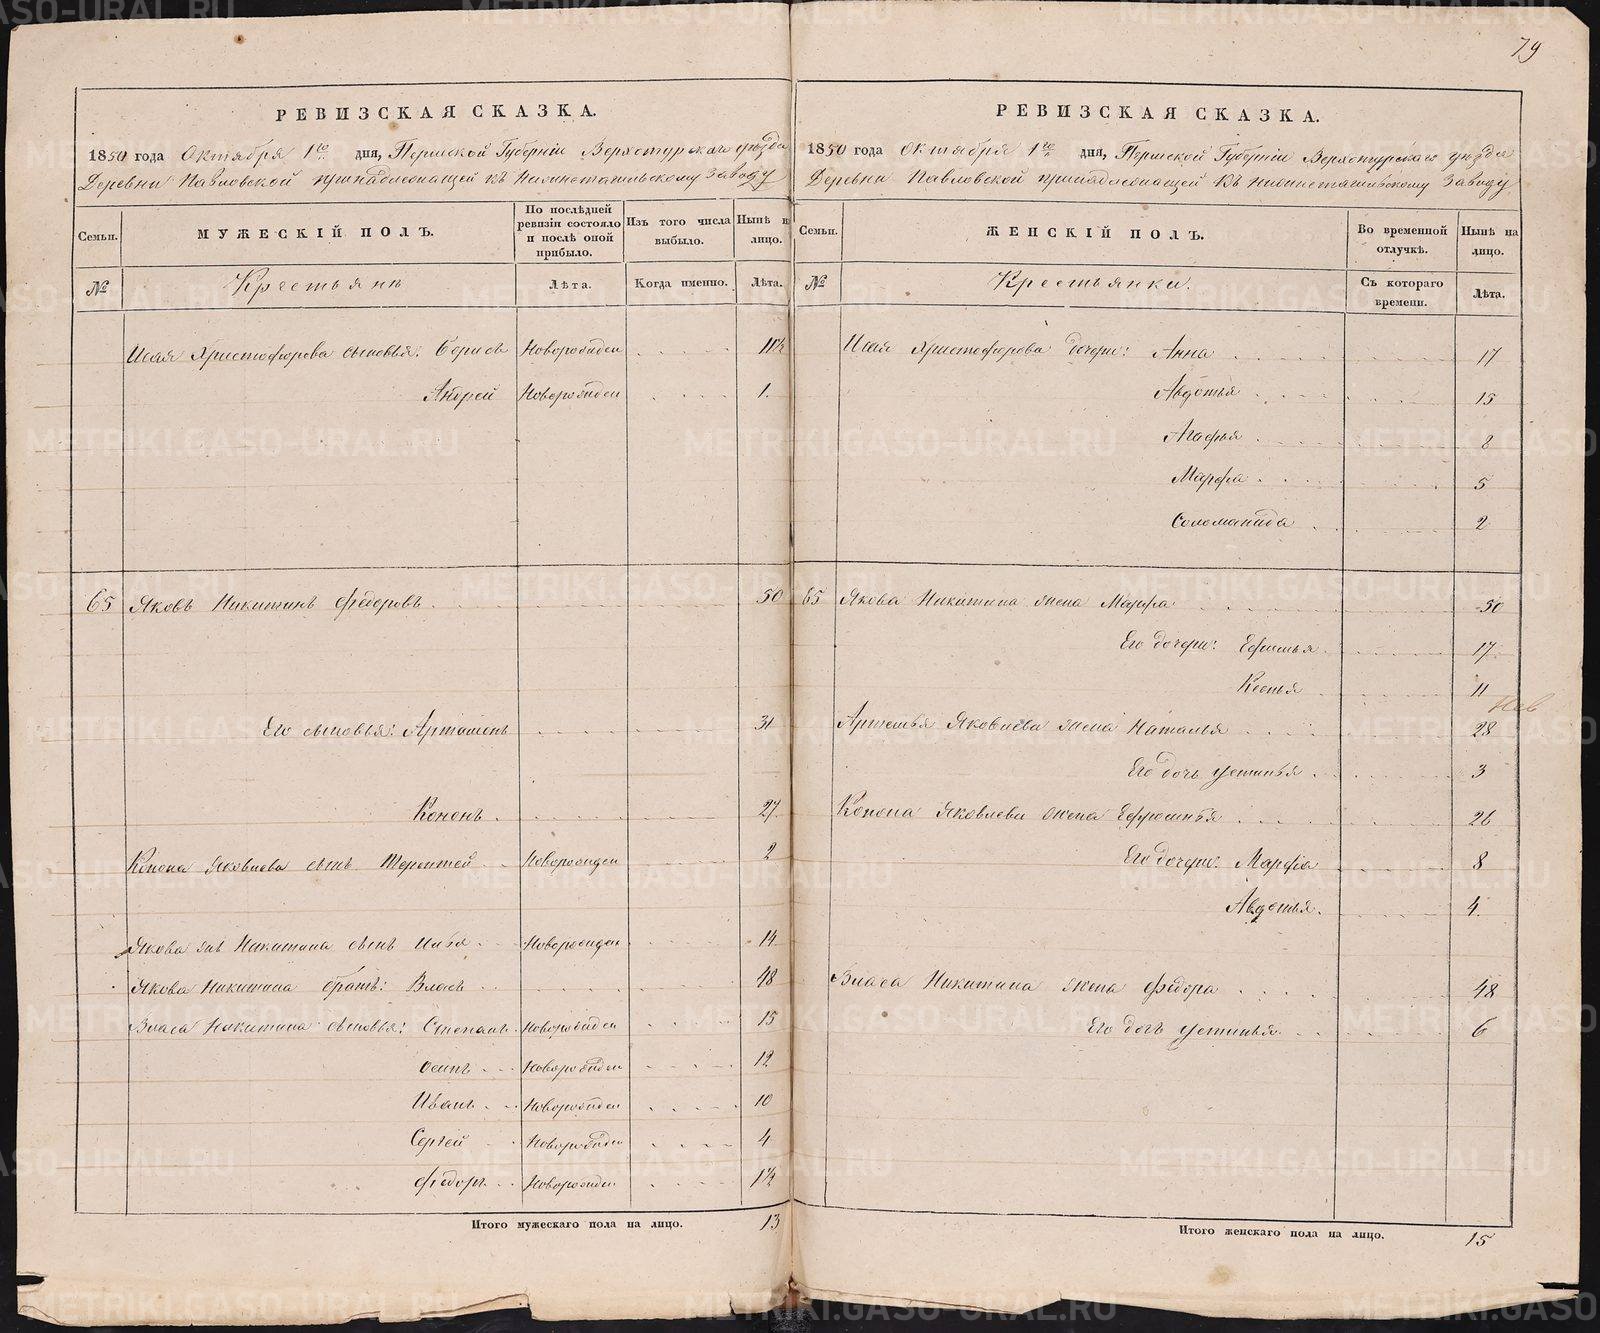 79
РЕВИЗСКАЯ СКАЗКА.
1850 года Октября 1го дня, Пермской Губерніи Верхотурскаго уѣзда
Деревни Павловской принадлежащей къ Нижнетагильскому Заводу
Семьи. МУЖЕСКІЙ ПОЛЪ. По послѣдней ревизіи состояло и послѣ оной прибыло. Изъ того числа выбыло. Нынѣ на лицо.
№ Крестьянѣ Лѣта. Когда именно. Лѣта.
Исая Христофорова сыновья: Борисъ Новорожден 11½
Андрей Новорожден 1.
65 Яковъ Никитинъ Федоровъ 50
Его сыновья: Артамонъ 31
Кононъ 27
Конона Яковлева сынъ Терентей Новорожден 2
Якова же Никитина сынъ Илья Новорожден 14
Якова Никитина братъ: Власъ 48
Власа Никитина сыновья: Степанъ Новорожден 15
Осипъ Новорожден 12
Иванъ Новорожден 10
Сергей Новорожден 4
Федоръ Новорожден 1½
Итого мужескаго пола на лицо. 13
РЕВИЗСКАЯ СКАЗКА.
1850 года Октября 1го дня, Пермской Губерніи Верхотурскаго уѣзда
Деревни Павловской принадлежащей къ Нижнетагильскому Заводу
Семьи. ЖЕНСКІЙ ПОЛЪ. Во временной отлучкѣ. Нынѣ на лицо.
№ Крестьянки. Съ котораго времени. Лѣта.
Исая Христофорова дочери: Анна 17
Авдотья 15
Агафья 8
Марфа 5
Соломанида 2
65 Якова Никитина жена Марфа 50
Его дочери: Ефимья 17
Ксенья 11
Яковлева жена Наталья 28
Его дочь Устинья 3
Конона Яковлева жена Ефросинья 26
Его дочери: Марфа 8
Авдотья. 4
Власа Никитина жена Федора 48
Его дочь Устинья 6
Итого женскаго пола на лицо. 15
METRIKI.GASO-URAL.RU